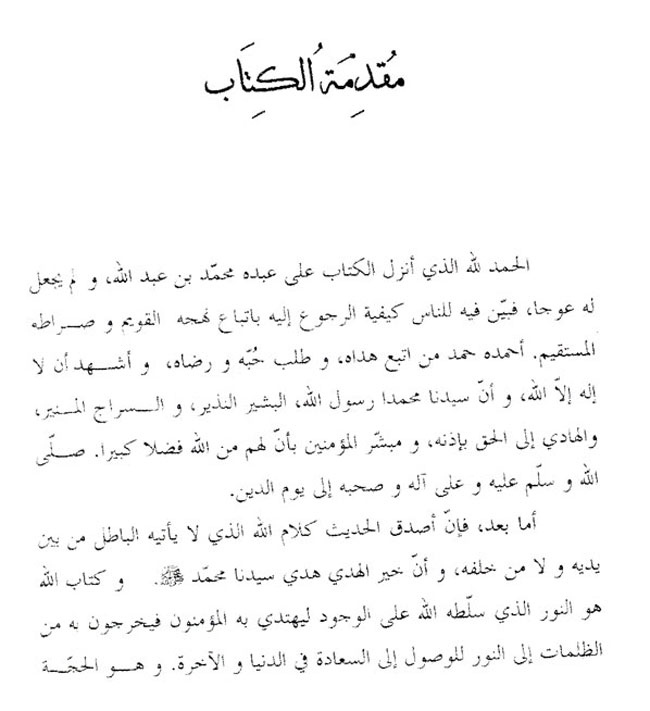 مُقدِمَة الُكِتَاب
الحمد لله الذي أنزل الكتاب على عبده محمّد بن عبد الله، و لم يجعل
له عوجا، فبيّن فيه للناس كيفية الرجوع إليه باتباع نهجه القويم و صراطه
المستقيم. أحمده حمد من اتبع هداه، و طلب حُبّه و رضاه، و أشهد أن لا
إله إلاّ الله، و أنّ سيدنا محمدا رسول الله، البشير النذير، و السراج المنير،
والهادي إلى الحق بإذنه، و مبشّر المؤمنين بأنّ لهم من الله فضلا كبيرا. صلّى
الله و سلّم عليه و على آله و صحبه إلى يوم الدين.
أما بعد، فإنّ أصدق الحديث كلام الله الذي لا يأتيه الباطل من بين
يديه و لا من خلفه، و أنّ خير الهدي هدي سيدنا محمّد ﷺ. و كتاب الله
هو النور الذي سلّطه الله على الوجود ليهتدي به المؤمنون فيخرجون به من
الظلمات إلى النور للوصول إلى السعادة في الدنيا و الآخرة. و هو الحجّة